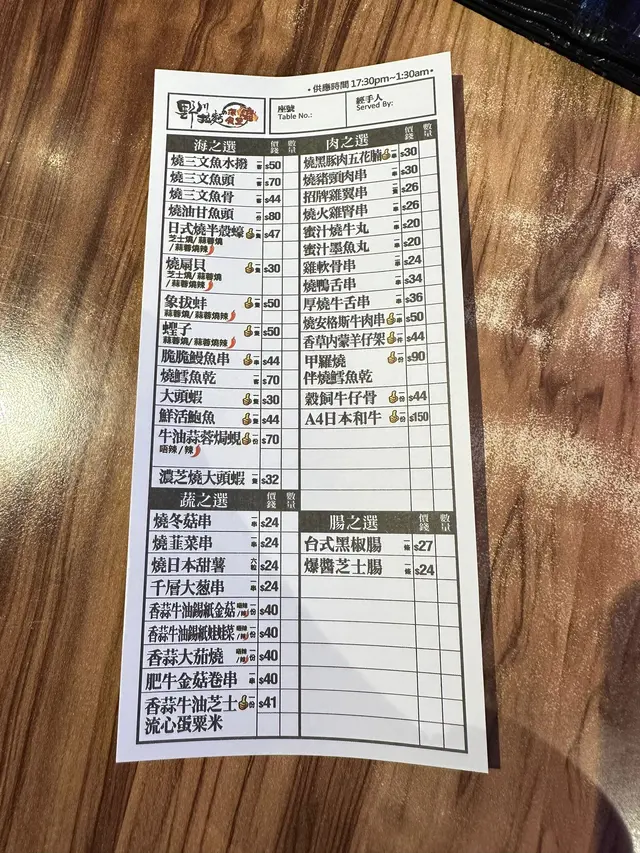 •供應時間 17:30pm~1:30am•
野川
座號
Table No.:
經手人
Served By:
海之選 價錢 數量
燒三文魚水撥 一客 $50
燒三文魚頭 一客 $70
燒三文魚骨 一客 $44
燒油甘魚頭 一份 $80
日式燒半殼蠔 一隻 $47
芝士燒/蒜蓉燒
/蒜蓉燒辣
燒扇貝 一隻 $30
芝士燒/蒜蓉燒
/蒜蓉燒辣
象拔蚌 一隻 $50
蒜蓉燒/蒜蓉燒辣
蟶子 一隻 $50
蒜蓉燒/蒜蓉燒辣
脆脆鰻魚串 一串 $44
燒鱈魚乾 一客 $70
大頭蝦 一隻 $30
鮮活鮑魚 一隻 $44
牛油蒜蓉焗蜆 一份 $70
唔辣/辣
濃芝燒大頭蝦 一隻 $32
蔬之選 價錢 數量
燒冬菇串 一串 $24
燒韮菜串 一串 $24
燒日本甜薯 $24
千層大葱串 一串 $24
香蒜牛油錫紙金菇 唔辣/辣 一份 $40
香蒜牛油錫紙娃娃菜 唔辣/辣 一份 $40
香蒜大茄燒 唔辣/辣 一份 $40
肥牛金菇卷串 一串 $40
香蒜牛油芝士 一份 $41
流心蛋粟米
肉之選 價錢 數量
燒黑豚肉五花腩 一串 $30
燒豬頸肉串 一串 $30
招牌雞翼串 一隻 $26
燒火雞腎串 一串 $26
蜜汁燒牛丸 一串 $20
蜜汁墨魚丸 一串 $20
雞軟骨串 一串 $24
燒鴨舌串 一串 $34
厚燒牛舌串 一串 $36
燒安格斯牛肉串 一串 $50
香草內蒙羊仔架 一件 $44
甲羅燒 一份 $90
伴燒鱈魚乾
穀飼牛仔骨 一份 $44
A4日本和牛 一份 $150
腸之選 價錢 數量
台式黑椒腸 一條 $27
爆醬芝士腸 一條 $24